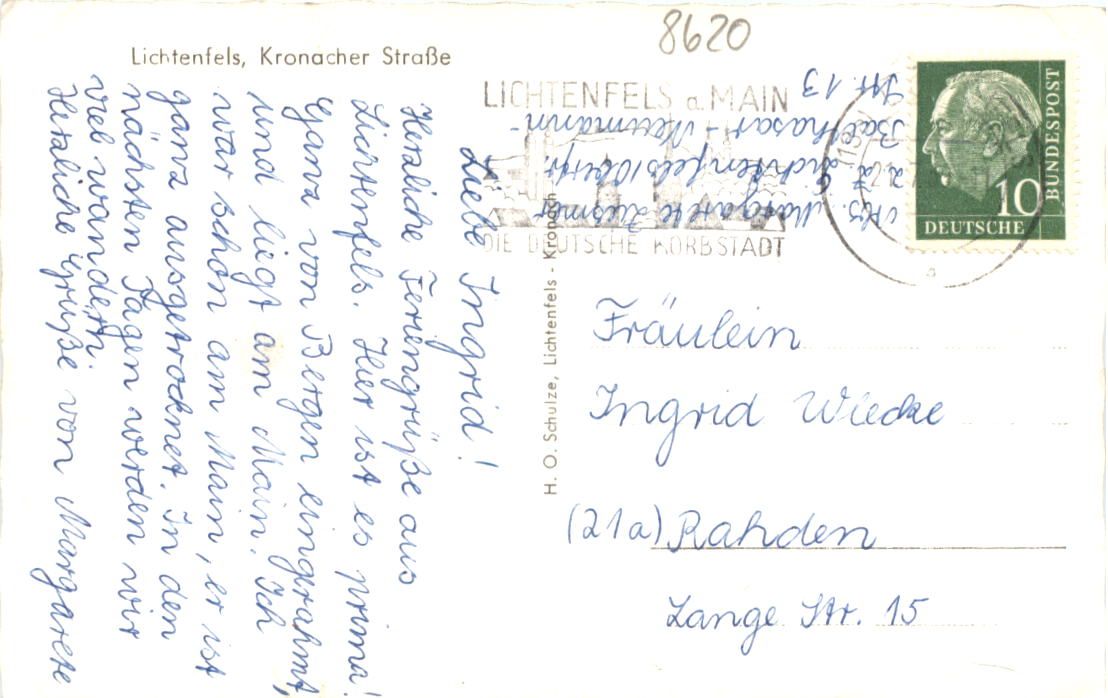 Lichtenfels, Kronacher Straße
8620
LICHTENFELS a. MAIN
DIE DEUTSCHE KORBSTADT
(13a)
a
BUNDESPOST
10
DEUTSCHE
Abs. Margarete
z. Z. Lichtenfels/Oberfr.
Balthasar-Neumann-
Str. 13
Liebe Ingrid!
Herzliche Feriengrüße aus
Lichtenfels. Hier ist es prima!
Ganz von Bergen eingerahmt,
und liegt am Main. Ich
war schon am Main, er ist
ganz ausgetrocknet. In den
nächsten Tagen werden wir
viel wandern.
Herzliche Grüße von Margarete
H. O. Schulze, Lichtenfels - Kronach
Fräulein
Ingrid Wiecke
(21a) Rahden
Lange Str. 15